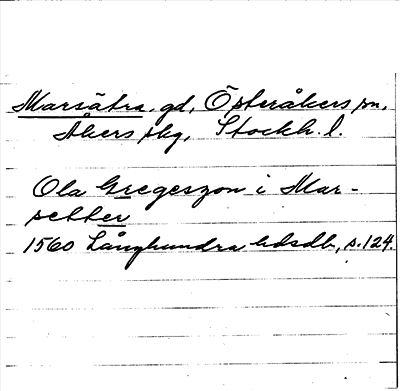 Marsätra, gd, Österåkers sn,
Åkers skg, Stockh. l.
Ola Gregerszon i Mar-
setter
1560 Långhundra hdsdb, s. 124.